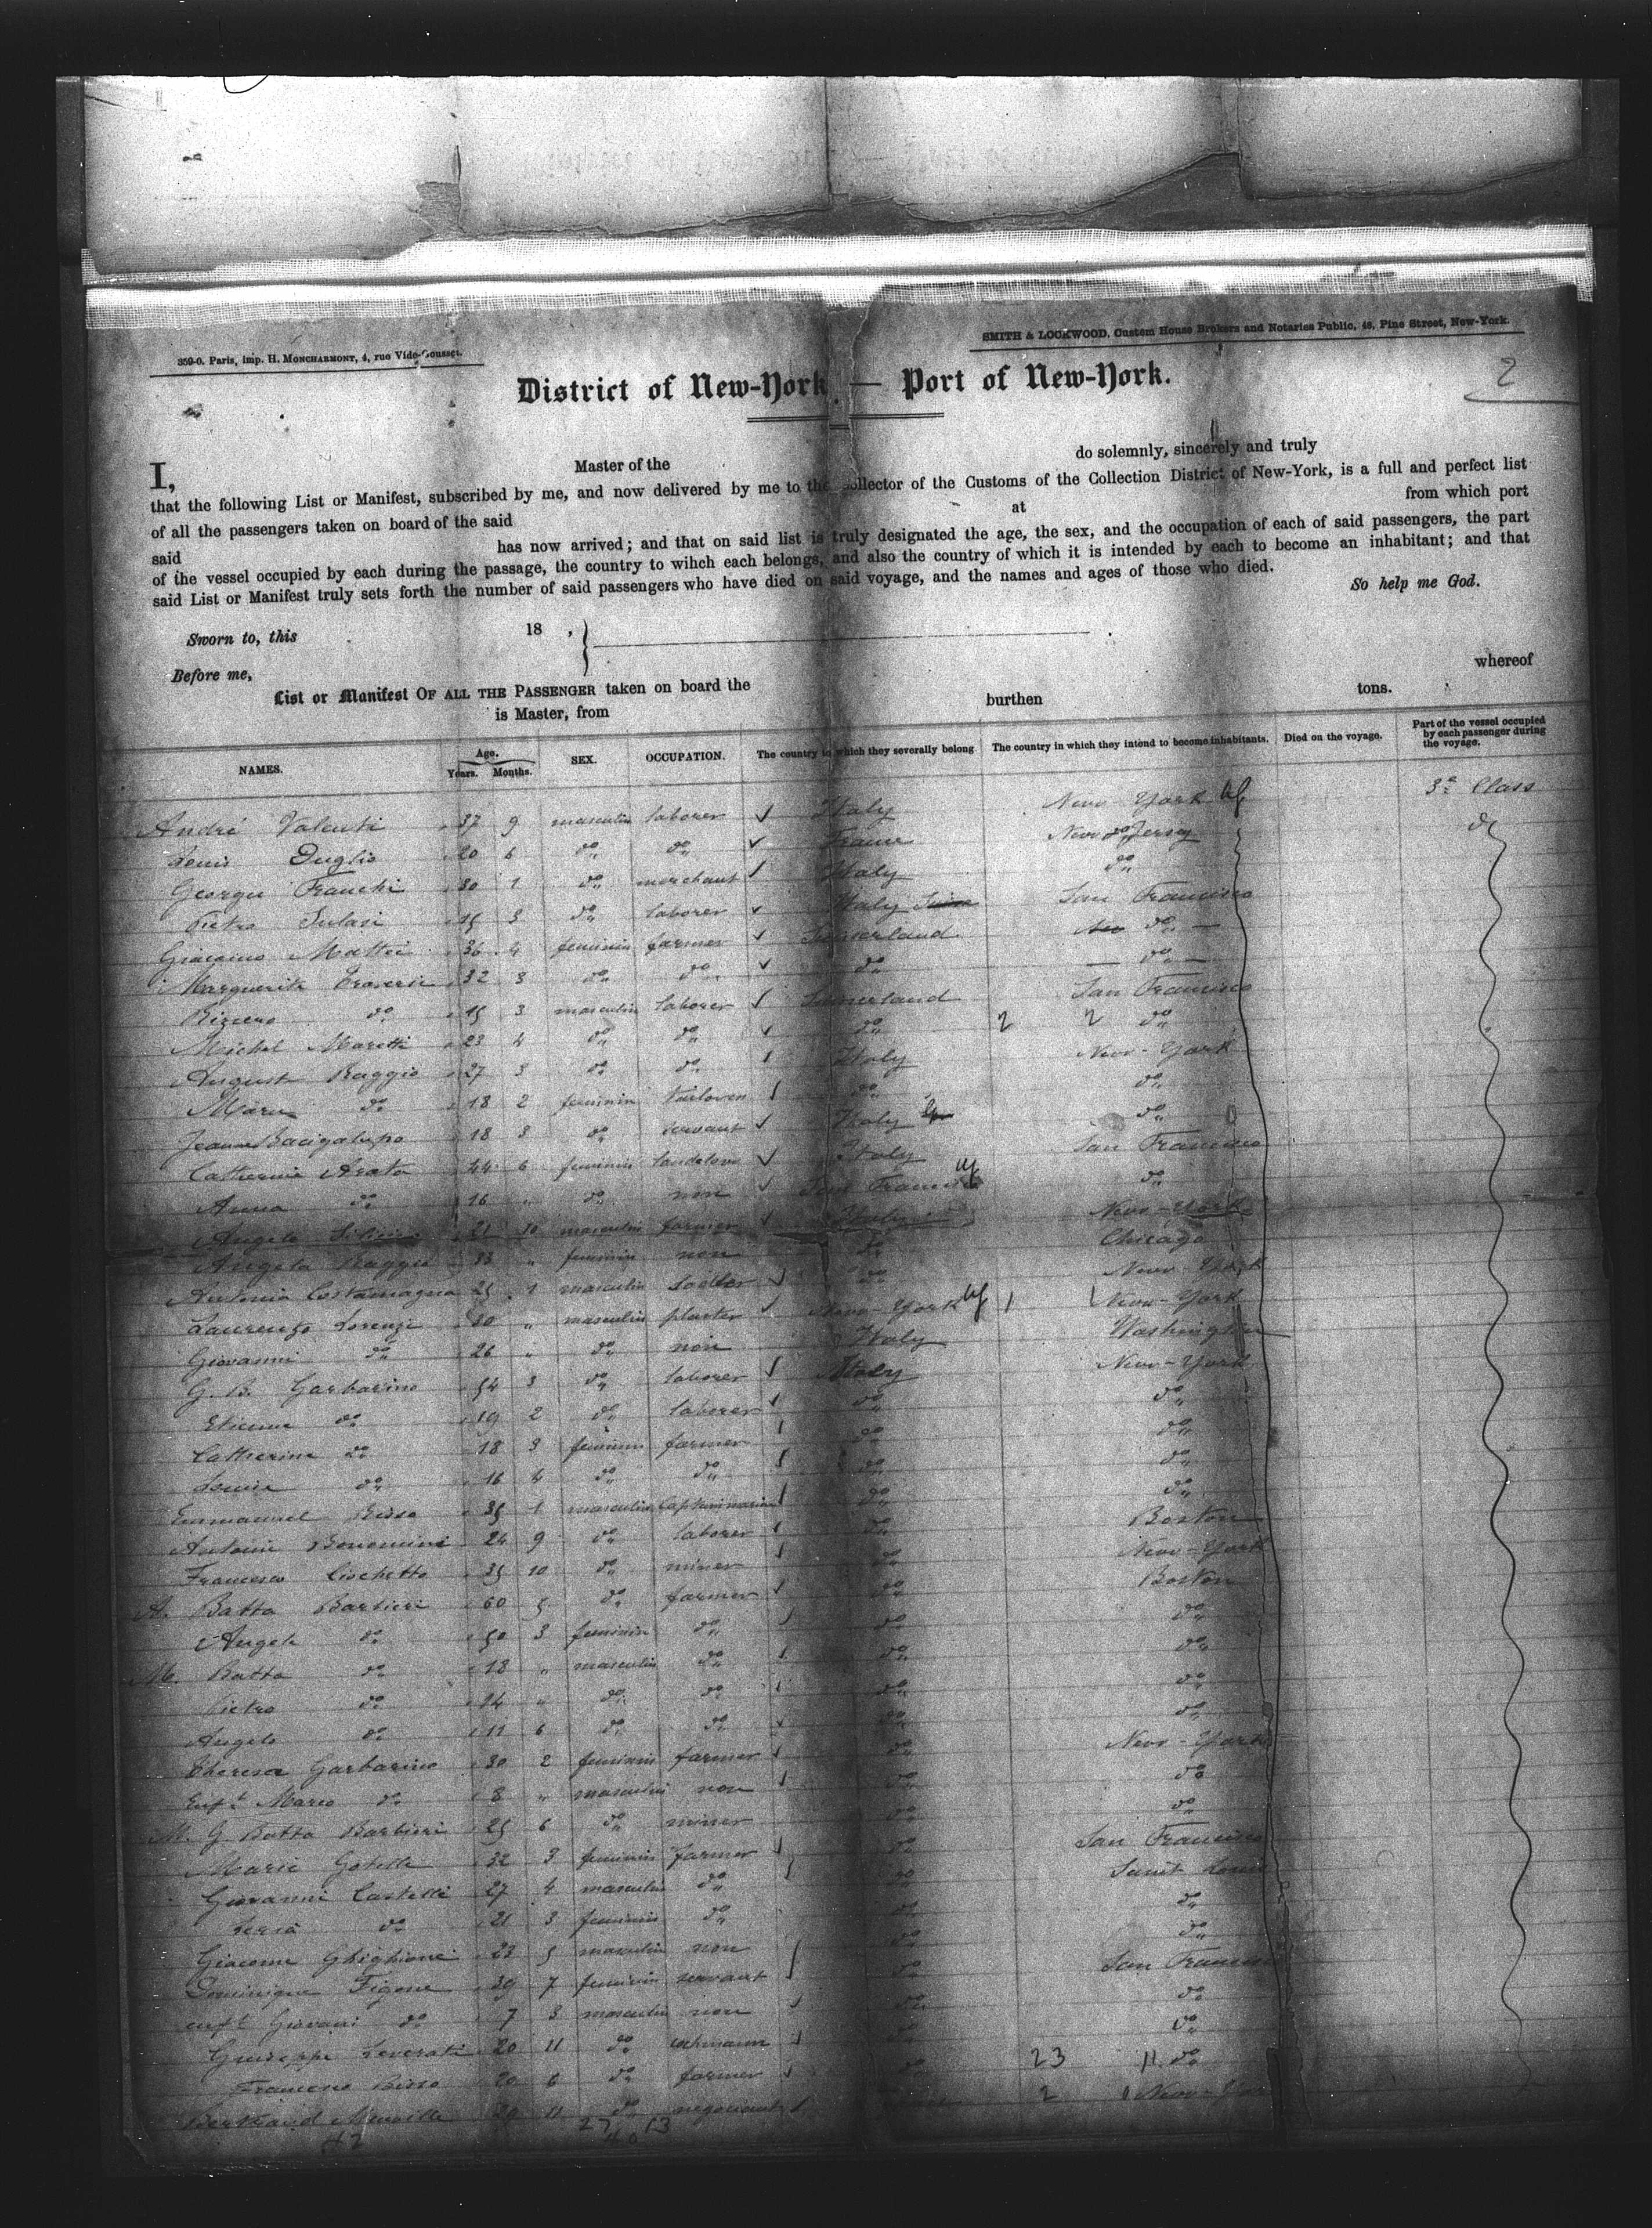 359-0. Paris, imp. H. MONCHARMONT, 4, rue Vide-Gousset.
SMITH & LOCKWOOD, Custom House Brokers and Notaries Public, 48, Pine Street, New-York.
2
District of New-York. — Port of New-York.
I, Master of the do solemnly, sincerely and truly
that the following List or Manifest, subscribed by me, and now delivered by me to the Collector of the Customs of the Collection District of New-York, is a full and perfect list
of all the passengers taken on board of the said at from which port
said has now arrived; and that on said list is truly designated the age, the sex, and the occupation of each of said passengers, the part
of the vessel occupied by each during the passage, the country to wihch each belongs, and also the country of which it is intended by each to become an inhabitant; and that
said List or Manifest truly sets forth the number of said passengers who have died on said voyage, and the names and ages of those who died.
So help me God.
Sworn to, this 18 ,
Before me,
List or Manifest OF ALL THE PASSENGER taken on board the whereof
is Master, from burthen tons.
NAMES. Age. Years. Months. SEX. OCCUPATION. The country to which they severally belong The country in which they intend to become inhabitants. Died on the voyage. Part of the vessel occupied by each passenger during the voyage.
André Valenti 37 9 masculin laborer Italy New-York 3e Class
Louis Duglio 20 6 do do France New Jersey do
George Franchi 30 1 do merchant Italy do
Pietro 15 3 do laborer Italy San Francisco
Giacomo Mattei 36 4 feminin farmer do
Marguerite 32 3 do do do do
do 15 3 masculin laborer San Francisco
Michel Moretti 23 4 do do do 2 2 do
August Raggio 27 3 do do Italy New-York
Marie do 18 2 feminin do do
Jeanne Bacigalupo 18 3 do servant Italy do
Catherine Arata 44 6 feminin Italy San Francisco
Anna do 16 " do non San Francisco do
Angelo 21 10 masculin farmer Italy New-York
Angela Raggio 33 " feminin non do Chicago
Antonio Costamagna 25 1 masculin do New-York
Laurenzo Lorenzi 30 " masculin plaster New-York 1 New-York
Giovanni do 26 " do non Italy Washington
G. B. Garbarino 54 3 do laborer Italy New-York
Etienne do 19 2 do laborer do do
Catherine do 18 3 feminin farmer do do
Louise do 16 4 do do do do
Emmanuel Bisso 35 1 masculin do do
Antoine Bonomini 24 9 do laborer do Boston
Francesco Ciochetto 35 10 do miner do New-York
A. Batta Barbieri 60 5 do farmer do Boston
Angela do 50 3 feminin do do do
M. Batta do 18 " masculin do do do
Pietro do 14 " do do do do
Angelo do 11 6 do do do do
Theresa Garbarino 30 2 feminin farmer do New-York
Enft Marco do 8 " masculin non do do
M. G. Batta Barbieri 25 6 do miner do do
Marie Gotelli 32 3 feminin farmer do San Francisco
Giovanni Castelli 27 4 masculin do do Saint Louis
do 21 3 feminin do do do
Giacomo Ghiglione 23 5 masculin non do do
Dominique Figone 39 7 feminin servant do San Francisco
enft Giovani do 7 3 masculin non do do
Giuseppe Leverati 20 11 do do do
Francesco Bisso 20 6 do farmer do 23 11 do
Bertrand 29 11 do negociant 2 1 New-York
42 27 13
40